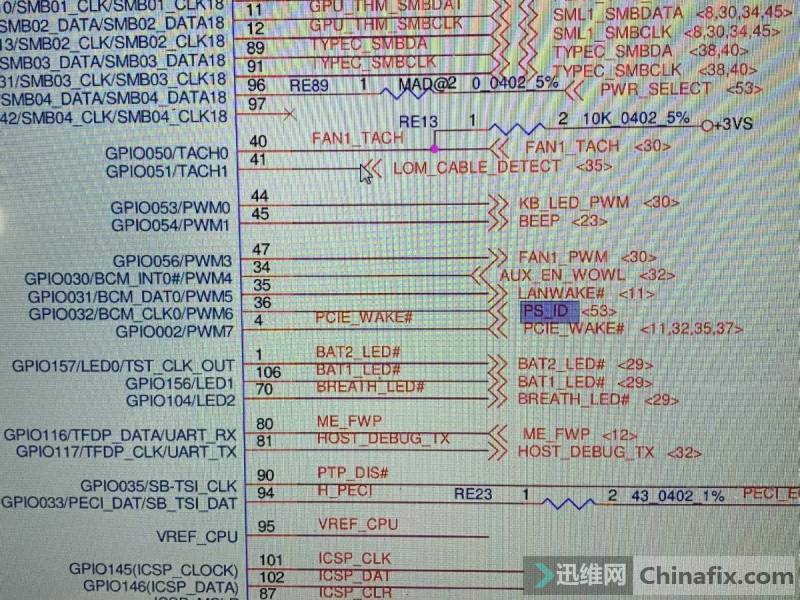 11 GPU_THM_SMBDAT SML1_SMBDATA <8,30,34,45>
SMB02_DATA/SMB02_DATA18 12 GPU_THM_SMBCLK SML1_SMBCLK <8,30,34,45>
SMB02_CLK/SMB02_CLK18 89 TYPEC_SMBDA TYPEC_SMBDA <38,40>
SMB03_DATA/SMB03_DATA18 91 TYPEC_SMBCLK TYPEC_SMBCLK <38,40>
31/SMB03_CLK/SMB03_CLK18 96 RE89 1 MAD@2 0_0402_5% PWR_SELECT <53>
SMB04_DATA/SMB04_DATA18 97
42/SMB04_CLK/SMB04_CLK18
RE13 1 2 10K_0402_5% +3VS
GPIO050/TACH0 40 FAN1_TACH FAN1_TACH <30>
GPIO051/TACH1 41 LOM_CABLE_DETECT <35>
GPIO053/PWM0 44 KB_LED_PWM <30>
GPIO054/PWM1 45 BEEP <23>
GPIO056/PWM3 47 FAN1_PWM <30>
GPIO030/BCM_INT0#/PWM4 34 AUX_EN_WOWL <32>
GPIO031/BCM_DAT0/PWM5 35 LANWAKE# <11>
GPIO032/BCM_CLK0/PWM6 36 PS_ID <53>
GPIO002/PWM7 4 PCIE_WAKE# PCIE_WAKE# <11,32,35,37>
GPIO157/LED0/TST_CLK_OUT 1 BAT2_LED# BAT2_LED# <29>
GPIO156/LED1 106 BAT1_LED# BAT1_LED# <29>
GPIO104/LED2 70 BREATH_LED# BREATH_LED# <29>
GPIO116/TFDP_DATA/UART_RX 80 ME_FWP ME_FWP <12>
GPIO117/TFDP_CLK/UART_TX 81 HOST_DEBUG_TX HOST_DEBUG_TX <32>
GPIO035/SB-TSI_CLK 90 PTP_DIS#
GPIO033/PECI_DAT/SB_TSI_DAT 94 H_PECI RE23 1 2 43_0402_1%
VREF_CPU 95 VREF_CPU
GPIO145(ICSP_CLOCK) 101 ICSP_CLK
GPIO146(ICSP_DATA) 102 ICSP_DAT
87 ICSP_CLR
迅维网 Chinafix.com